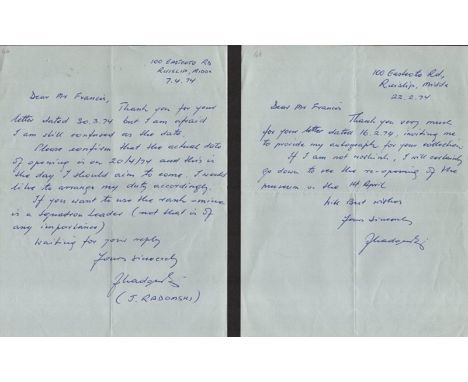 100 Eastcote Rd
Ruislip, Middx
7.4.74
Dear Mr Francis,
Thank you for your
letter dated 30.3.74 but I am afraid
I am still confused as the date.
Please confirm that the actual date
of opening is on 20/4/74 and this is
the day I should aim to come. I would
like to arrange my duty accordingly.
If you want to use the rank - mine
is a Squadron Leader (not that is of
any importance)
Waiting for your reply
Yours sincerely
(J. RADOMSKI)
100 Eastcote Rd,
Ruislip, Middx
22.2.74
Dear Mr Francis
Thank you very much
for your letter dated 16.2.74, inviting me
to provide my autograph for your collection.
If I am not , I will certainly
go down to see the re-opening of the
museum on the 14 April
With Best wishes
Yours Sincerely